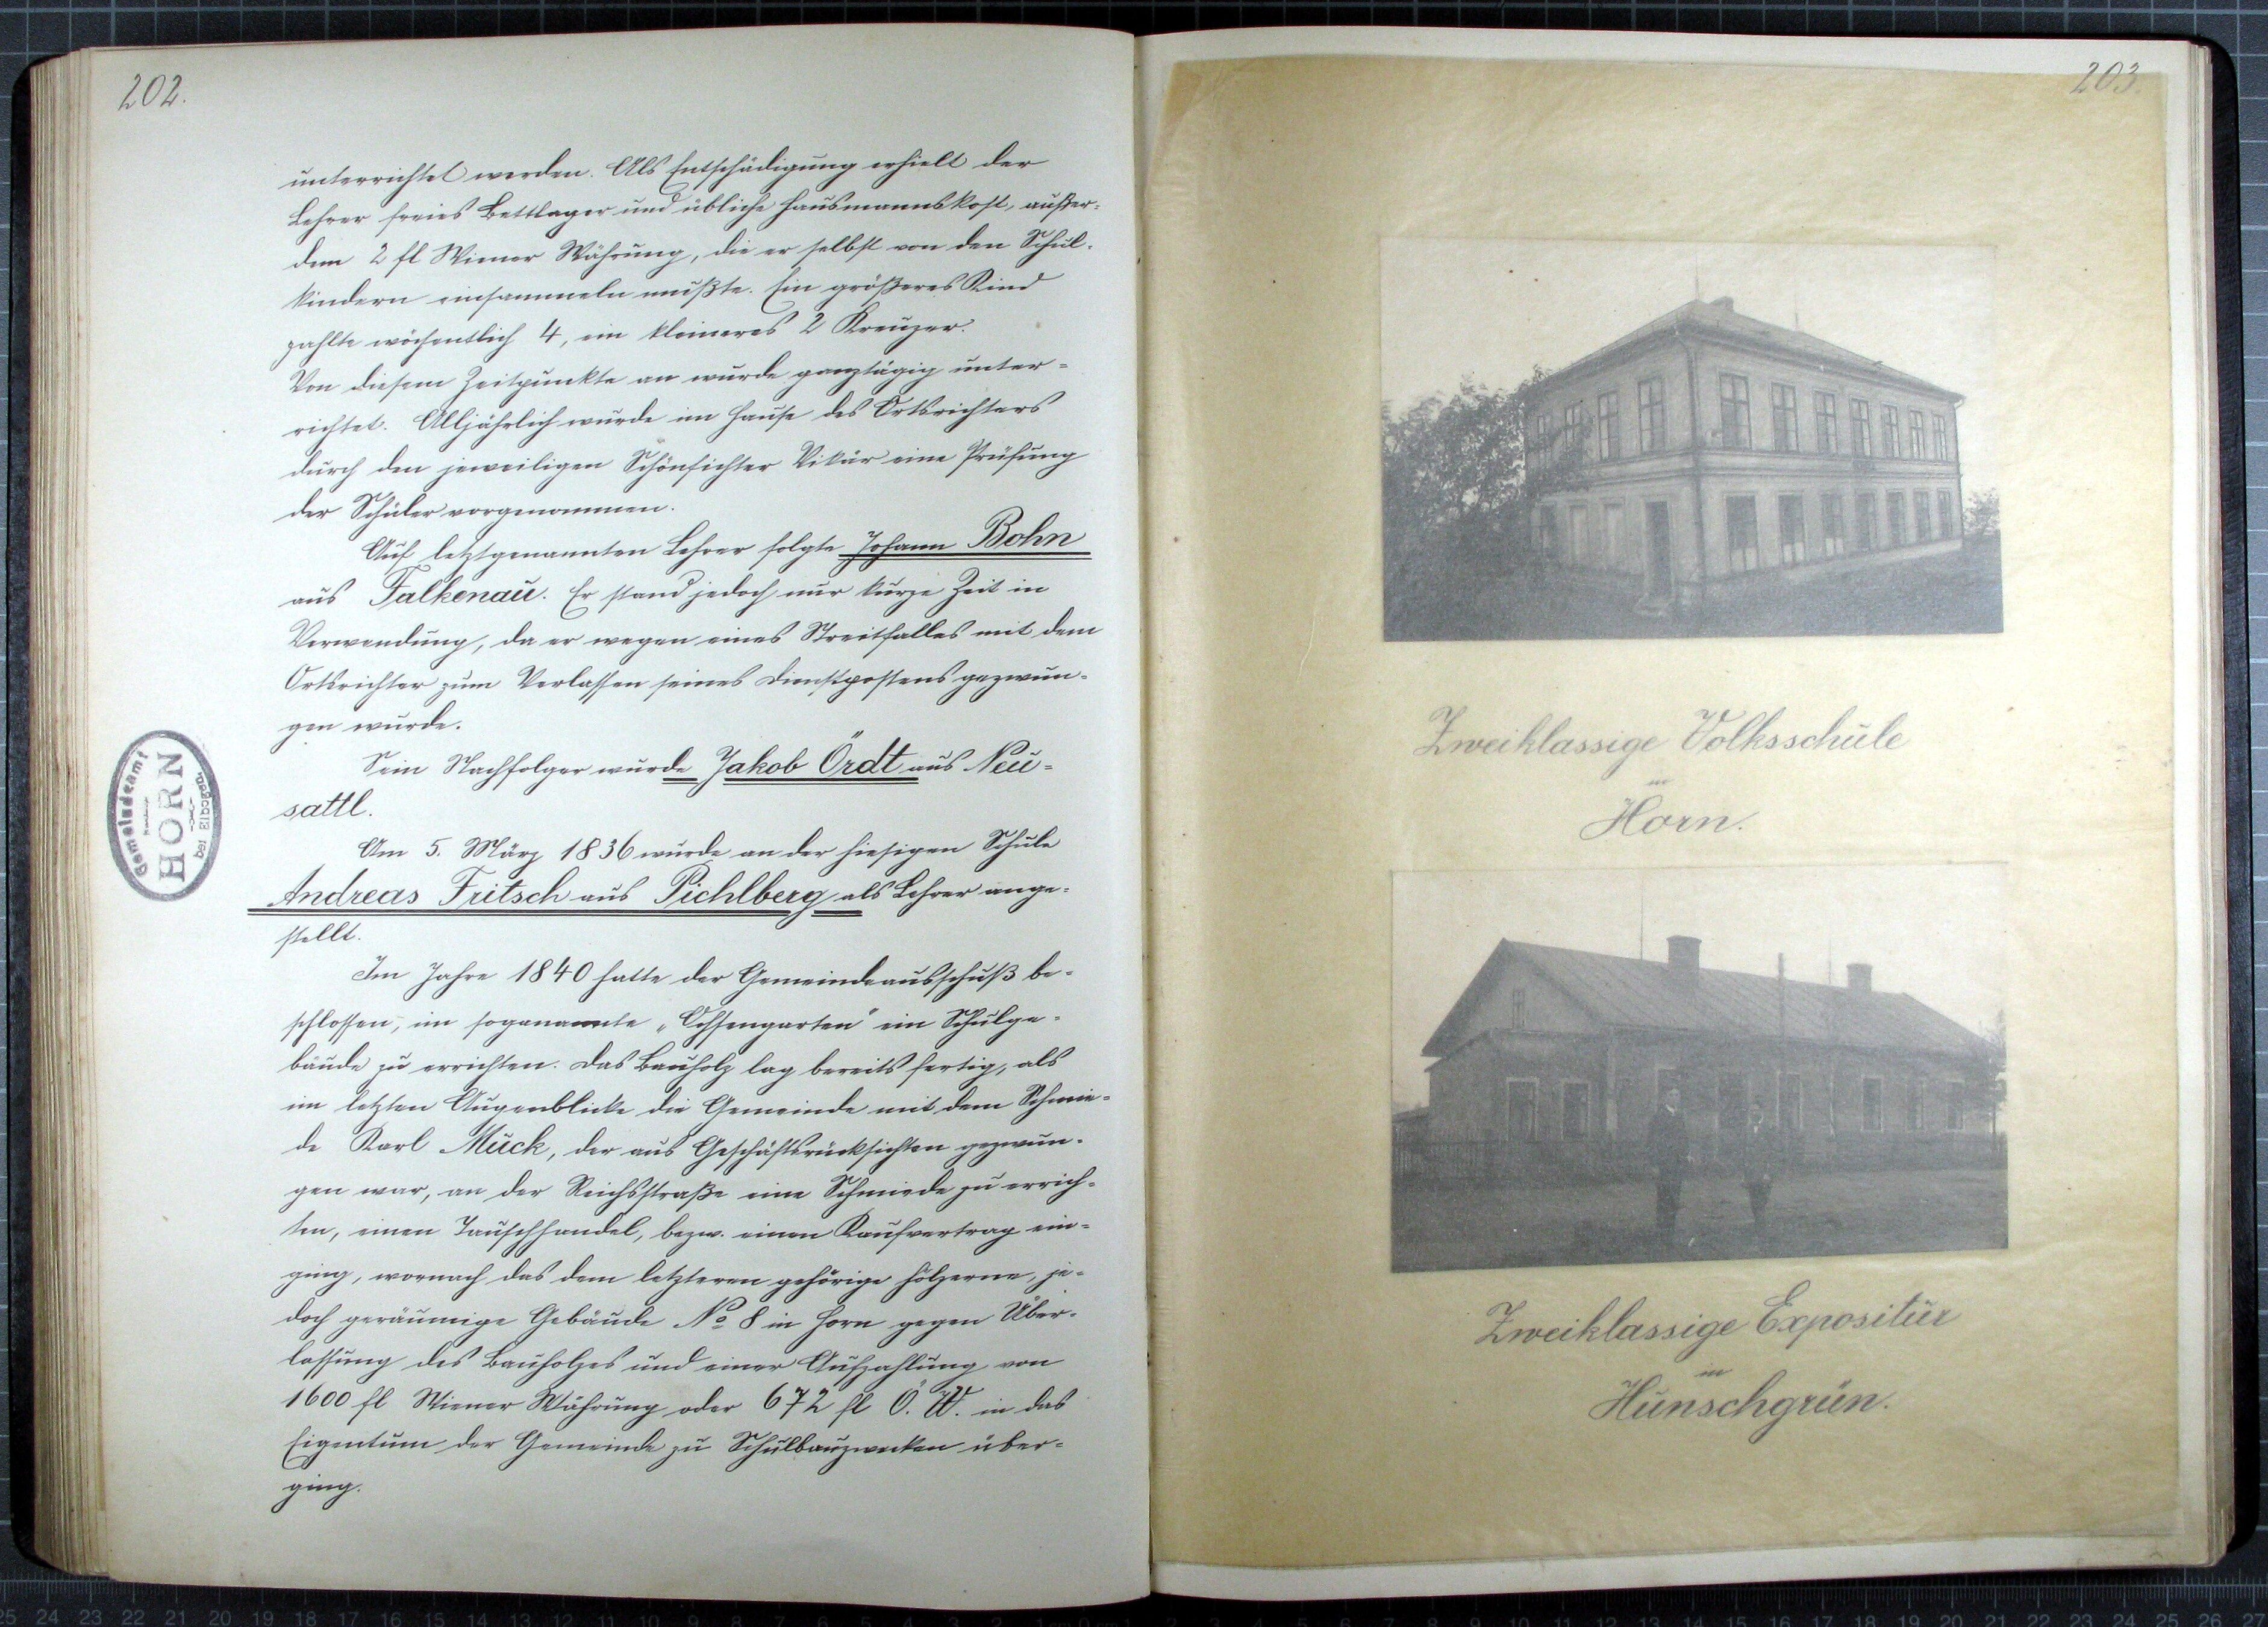 202.
unterrichtet werden. Als Entschädigung erhielt der
Lehrer freies Bettlager und übliche Hausmannskost, außer-
dem 2 fl Wiener Währung, die er selbst von den Schul-
kindern einsammeln mußte. Ein größeres Kind
zahlte wöchentlich 4, ein kleineres 2 Kreuzer.
Von diesem Zeitpunkte an wurde ganztägig unter-
richtet. Alljährlich wurde im Hause des Ortsrichters
durch den jeweiligen Schönfichter Vikär eine Prüfung
der Schüler vorgenommen.
Auf letztgenannten Lehrer folgte Johann Bohn
aus Falkenau. Er stand jedoch nur kurze Zeit in
Verwendung, da er wegen eines Streitfalles mit dem
Ortsrichter zum Verlassen seines Dienstpostens gezwun-
gen wurde.
Sein Nachfolger wurde Jakob Ördt aus Neu-
sattl.
Am 5. März 1836 wurde an der hiesigen Schule
Andreas Fritsch aus Pichlberg als Lehrer ange-
stellt.
Im Jahre 1840 hatte der Gemeindeausschuß be-
schlossen, im sogenannte „Ochsengarten" ein Schulge-
bäude zu errichten. Das Bauholz lag bereits fertig, als
im letzten Augenblicke die Gemeinde mit dem Schmie-
de Karl Mück, der aus Geschäftsrücksichten gezwun-
gen war, an der Reichsstraße eine Schmiede zu errich-
ten, einen Tauschhandel, bezw. einen Kaufvertrag ein-
ging, wornach das dem letzteren gehörige hölzerne, je-
doch geräumige Gebäude No 8 in Horn gegen Über-
lassung des Bauholzes und einer Aufzahlung von
1600 fl Wiener Währung oder 672 fl Ö. W. in das
Eigentum der Gemeinde zu Schulbauzwecken über-
ging.
Gemeindeamt
HORN
bei Elbogen
203.
Zweiklassige Volksschule
in
Horn.
Zweiklassige Expositur
in
Hunschgrün.
25 24 23 22 21 20 19 18 17 16 15 14 13 12 11 10 9 8 7 6 5 4 3 2 1 cm 0 cm 1 2 3 4 5 6 7 8 9 10 11 12 13 14 15 16 17 18 19 20 21 22 23 24 25 26 27